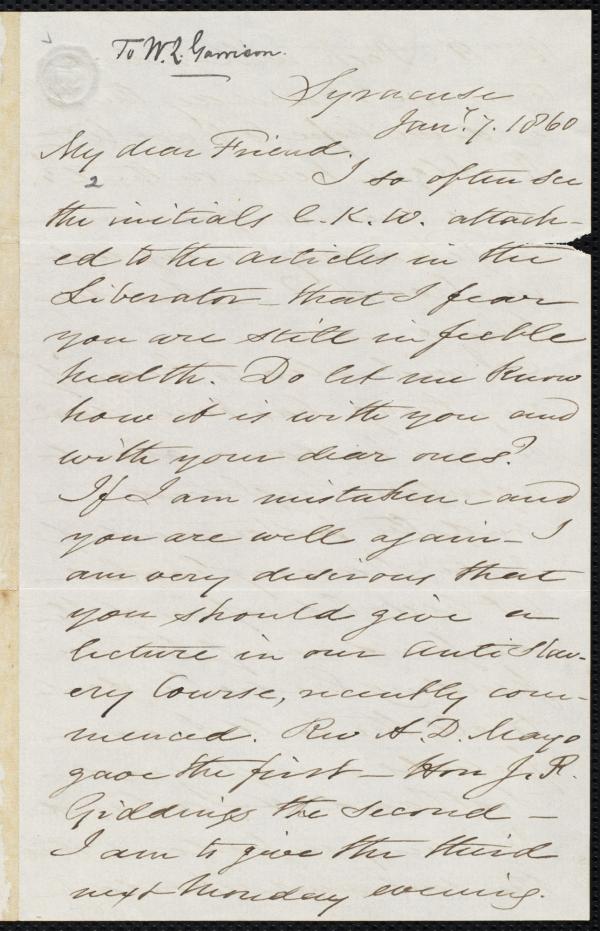 To W. L. Garrison.
Syracuse
Jany. 7. 1860
My dear Friend.
2
I so often see
the initials C. K. W. attach-
ed to the articles in the
Liberator - that I fear
you are still in feeble
health. Do let me know
how it is with you and
with your dear ones?
If I am mistaken - and
you are well again - I
am very desirous that
you should give a
lecture in our Anti Slav-
ery Course, recently com-
menced. Rev A. D. Mayo
gave the first - Hon J. R.
Giddings the second -
I am to give the third
next Monday evening.